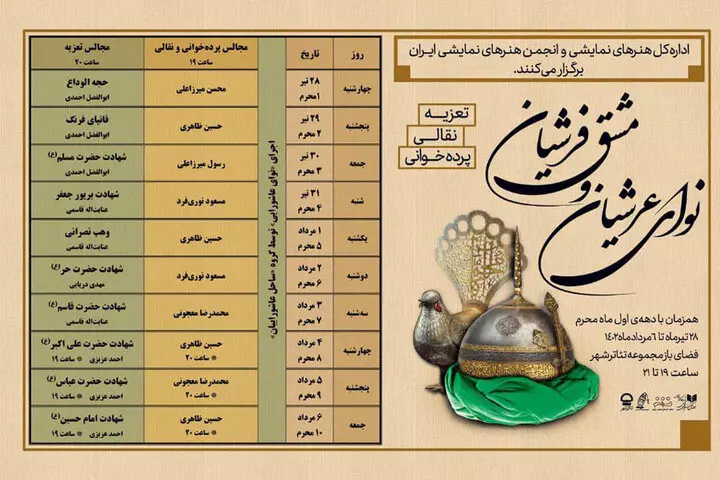 اداره‌کل هنرهای نمایشی و انجمن هنرهای نمایشی ایران
برگزار می‌کنند.
تعزیه
نقالی
پرده‌خوانی
مشق فرشیان
و
نوای عرشیان
همزمان با دهه‌ی اول ماه محرم
۲۸ تیرماه تا ۶ مردادماه ۱۴۰۲
فضای باز مجموعه تئاترشهر
ساعت ۱۹ تا ۲۱
روز
تاریخ
مجالس پرده‌خوانی و نقالی
ساعت ۱۹
مجالس تعزیه
ساعت ۲۰
اجرای «نوای عاشورایی» توسط گروه «ساحل عاشوراییان»
چهارشنبه
۲۸ تیر
۱ محرم
محسن میرزاعلی
حجه الوداع
ابوالفضل احمدی
پنجشنبه
۲۹ تیر
۲ محرم
حسین طاهری
فانیای فرنگ
ابوالفضل احمدی
جمعه
۳۰ تیر
۳ محرم
رسول میرزاعلی
شهادت حضرت مسلم(ع)
ابوالفضل احمدی
شنبه
۳۱ تیر
۴ محرم
مسعود نوری‌فرد
شهادت بریور جعفر
عنایت‌اله قاسمی
یکشنبه
۱ مرداد
۵ محرم
حسین طاهری
وهب نصرانی
عنایت‌اله قاسمی
دوشنبه
۲ مرداد
۶ محرم
مسعود نوری‌فرد
شهادت حضرت حر(ع)
مهدی دریایی
سه‌شنبه
۳ مرداد
۷ محرم
محمدرضا معجونی
شهادت حضرت قاسم(ع)
عنایت‌اله قاسمی
چهارشنبه
۴ مرداد
۸ محرم
حسین طاهری
* ساعت ۲۰
شهادت حضرت علی اکبر(ع)
احمد عزیزی * ساعت ۱۹
پنجشنبه
۵ مرداد
۹ محرم
محمدرضا معجونی
* ساعت ۲۰
شهادت حضرت عباس(ع)
احمد عزیزی * ساعت ۱۹
جمعه
۶ مرداد
۱۰ محرم
حسین طاهری
* ساعت ۲۰
شهادت امام حسین(ع)
احمد عزیزی * ساعت ۱۹